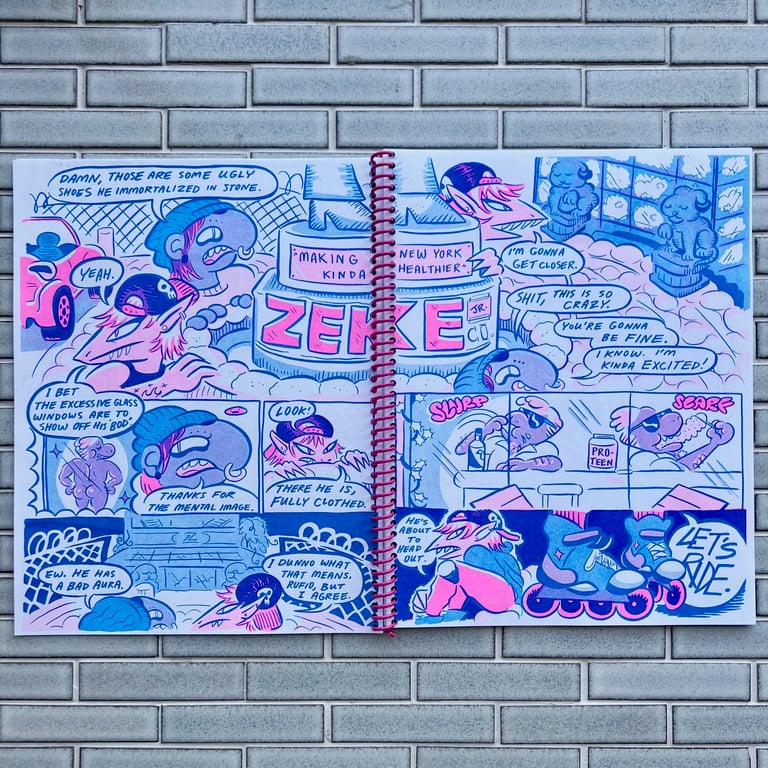 DAMN, THOSE ARE SOME UGLY
SHOES HE IMMORTALIZED IN STONE.
YEAH.
"MAKING NEW YORK
KINDA HEALTHIER".
ZEKE JR.
C.O.
I'M GONNA
GET CLOSER.
SHIT, THIS IS SO
CRAZY.
YOU'RE GONNA
BE FINE.
I KNOW. I'M
KINDA EXCITED!
I BET
THE EXCESSIVE GLASS
WINDOWS ARE TO,
SHOW OFF HIS BOD".
THANKS FOR
THE MENTAL IMAGE.
LOOK!
THERE HE IS,
FULLY CLOTHED.
SLURP
PRO-
TEEN
SCARF
EW. HE HAS
A BAD AURA.
Z
I DUNNO WHAT
THAT MEANS,
RUFIO, BUT
I AGREE.
HE'S
ABOUT
TO
HEAD
OUT.
LET'S
RIDE.